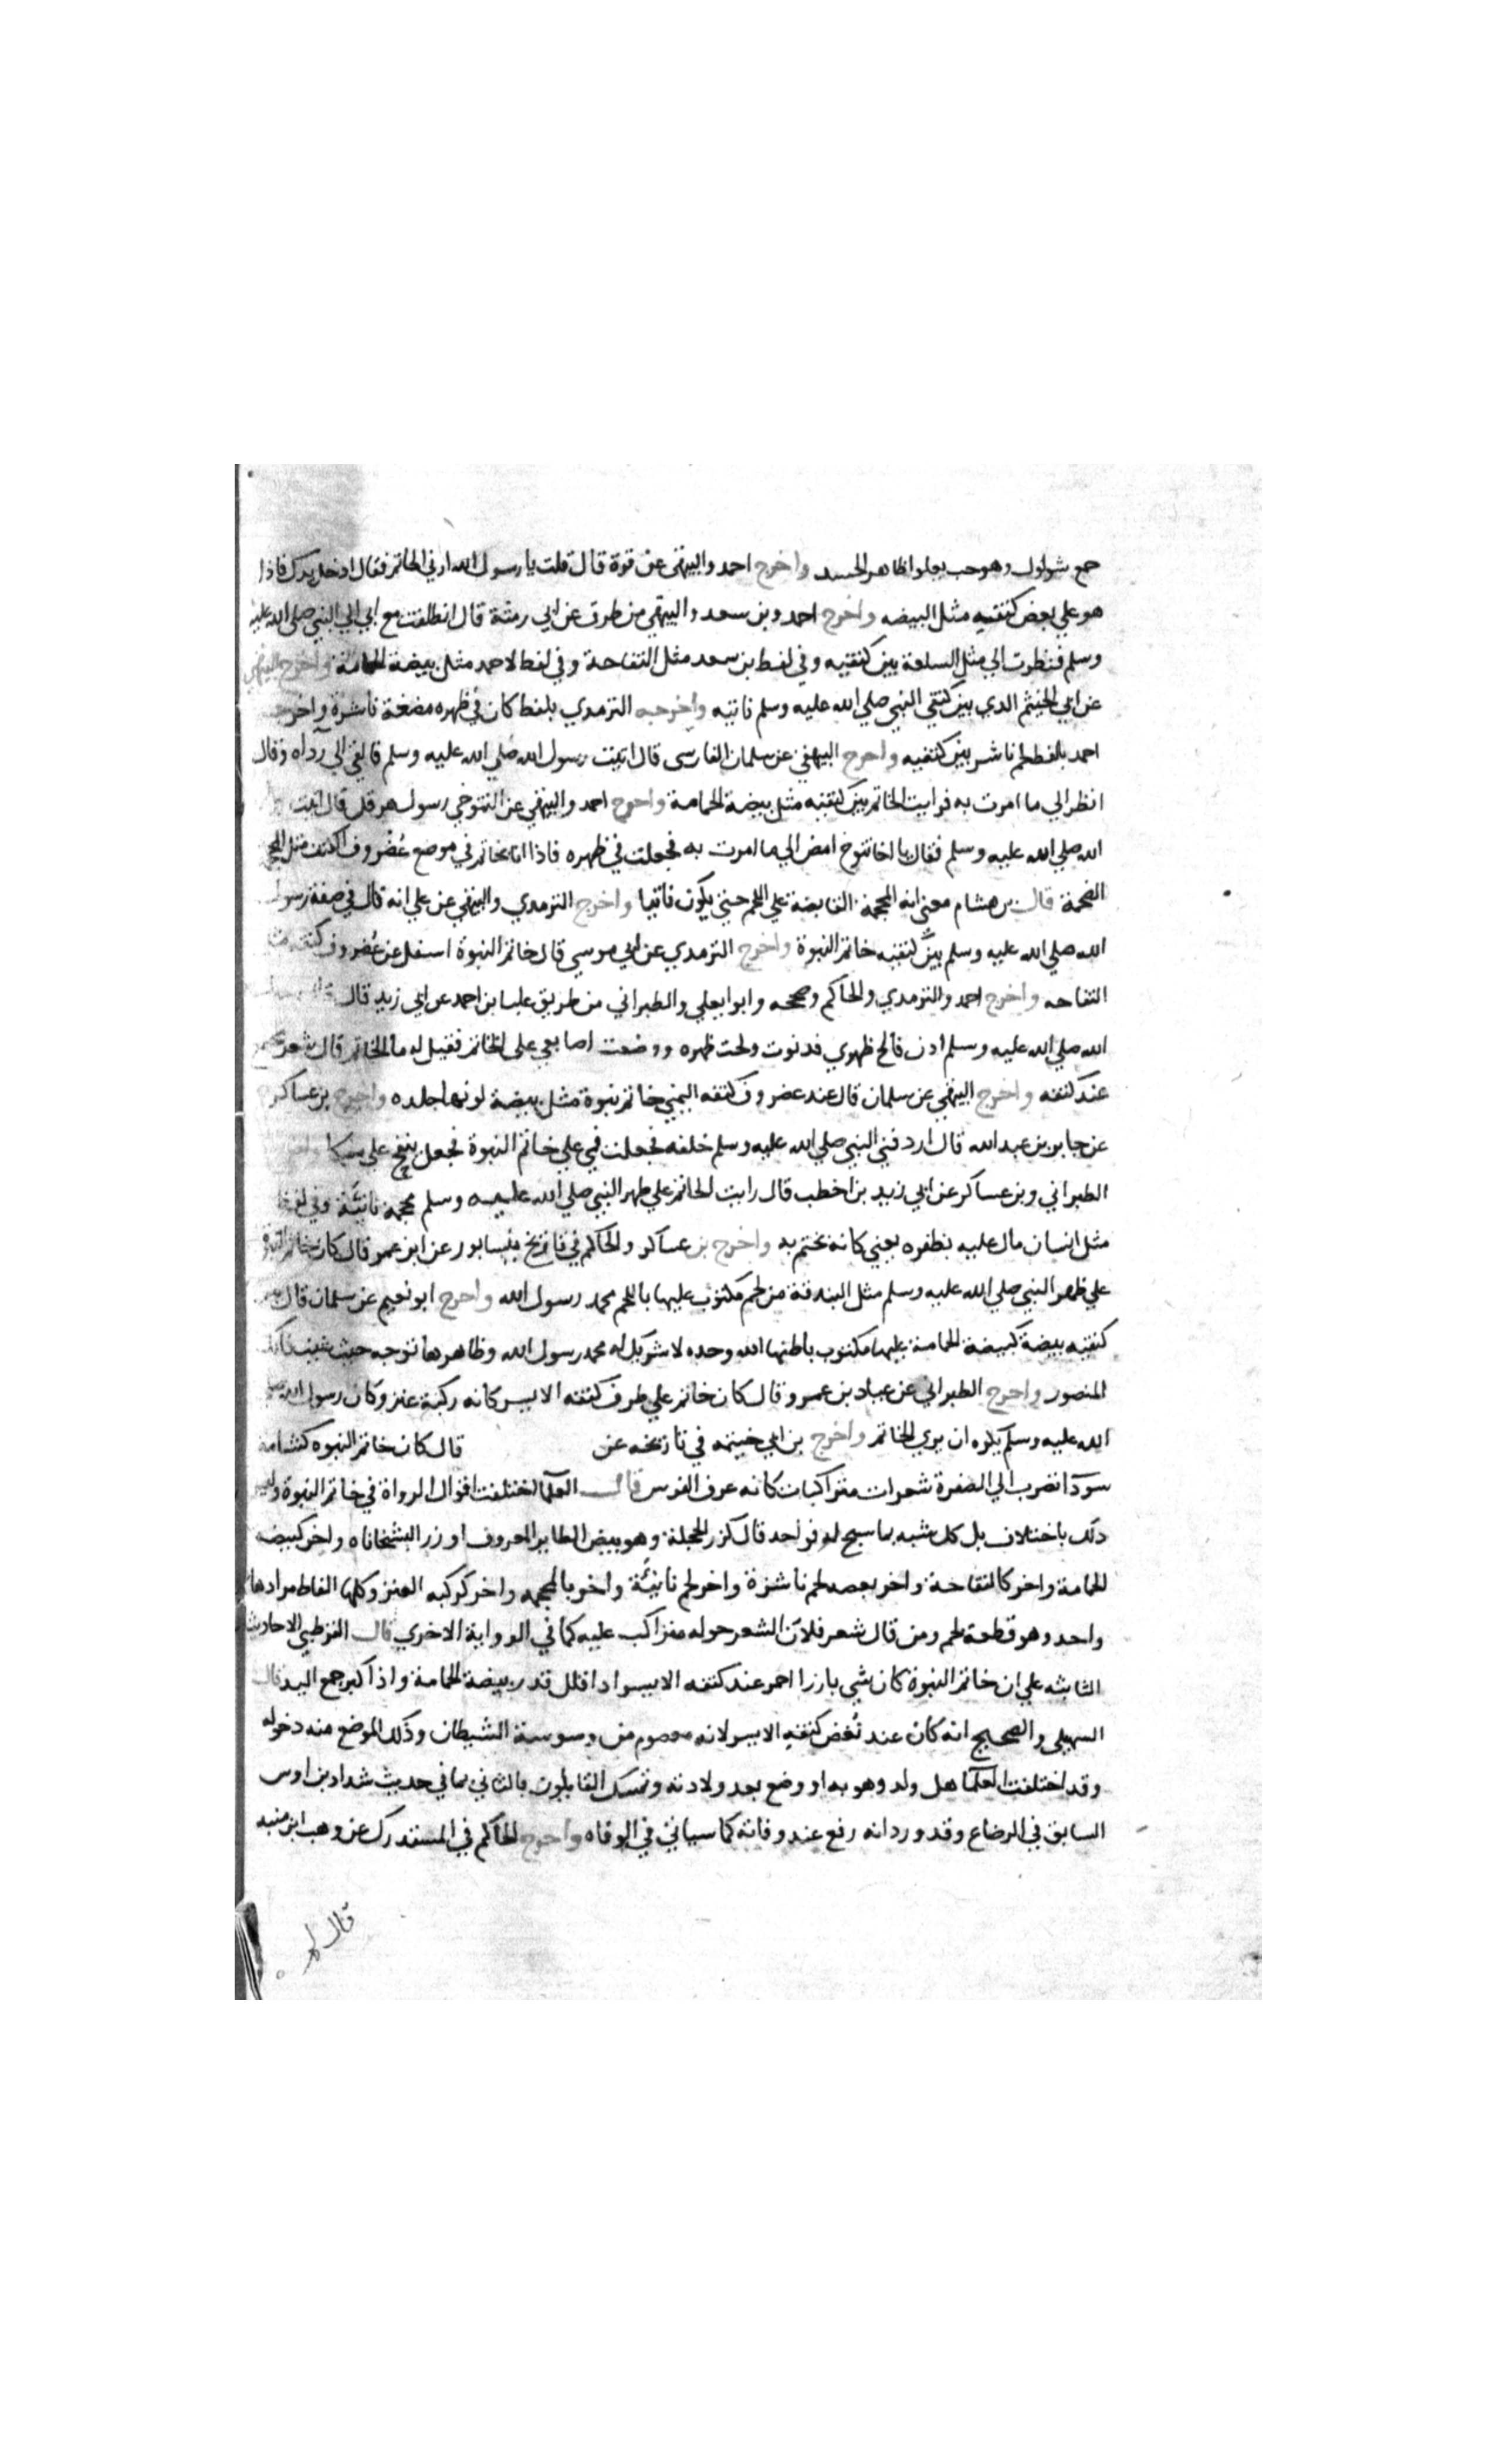 جمع ثولول وهو حب يعلوا ظاهر الجسد واخرج احمد والبيهقي عن قرة قال قلت يا رسول الله ارني الخاتم فقال ادخل يدك فاذا
هو علي بعض كتفيه مثل البيضه واخرج احمد وبن سعد والبيهقي من طرق عن ابي رمثة قال انطلقت مع ابي الي النبي صلي الله عليه
وسلم فنظرت الي مثل السلعة بين كتفيه وفي لفظ بن سعد مثل التفاحة وفي لفظ لاحمد مثل بيضة الحمامة واخرج البيهقي
عن الختم الدي بين كتفي النبي صلي الله عليه وسلم ناتيه واخرجه الترمدي بلفظ كان في ظهره مضغة ناشزة واخرجه
احمد بلفظ لحم ناشز بين كتفيه واخرج البيهقي عن سلمان الفارسي قال اتيت رسول الله صلي الله عليه وسلم فالقي الي رداه وقال
انظر الي ما امرت به فرايت الخاتم بين كتفيه مثل بيضة الحمامة واخرج احمد والبيهقي عن التنوخي رسول هرقل قال اتيت
الله صلي الله عليه وسلم فقال يا اخا تنوخ امض الي ما امرت به فجعلت في ظهره فاذا انا بخاتم في موضع غضروف الكتف مثل المحجمة
الضخمة قال بن هشام معني انه المحجمة القابضة علي اللحم حتي يكون ناتيا واخرج الترمدي والبيهقي عن علي انه قال في صفة رسول
الله صلي الله عليه وسلم بين كتفيه خاتم النبوة واخرج الترمدي عن ابي موسي قال خاتم النبوة اسفل عن غضروف كتفه مثل
التفاحه واخرج احمد والترمدي والحاكم وصححه وابو ايعلي والطبراني من طريق علبا بن احمد عن ابي زيد قال
الله صلي الله عليه وسلم ادن فامسح ظهري فدنوت ومسحت ظهره ووضعت اصابعي علي الخاتم فقيل له ما الخاتم قال شعر مجتمع
عند كتفه واخرج البيهقي عن سلمان قال عند غضروف كتفه اليمني خاتم نبوة مثل بيضة لونها جلده واخرج بن عساكر
عن جابر بن عبد الله قال اردفني النبي صلي الله عليه وسلم خلفه فجعلت فمي علي خاتم النبوة فجعل ينفح علي مسكا واخرج
الطبراني وبن عساكر عن ابي زيد بن اخطب قال رايت الخاتم علي ظهر النبي صلي الله عليه وسلم محجمة ناتئة وفي لفظ
مثل انسان مال عليه بظفره يعني كانه يختم به واخرج بن عساكر والحاكم في تاريخ نيسابور عن ابن عمر قال كان خاتم النبوة
علي ظهر النبي صلي الله عليه وسلم مثل البندقة من لحم مكتوب عليها باللحم محمد رسول الله واخرج ابو نعيم عن سلمان قال بين
كتفيه بيضة كبيضة الحمامة عليها مكتوب باطنها الله وحده لا شريك له محمد رسول الله وظاهرها توجه حيث شيت فانك
المنصور واخرج الطبراني عن عباد بن عمرو قال كان خاتم علي طرف كتفه الايسر كانه ركبة عنز وكان رسول الله صلي
الله عليه وسلم يكره ان يري الخاتم واخرج بن ابي خيثمه في تاريخه عن قال كان خاتم النبوه كشامة
سودا تضرب الي الصفرة شعرات متراكبات كانه عرف الفرس قال العلما اختلفت اقوال الرواة في خاتم النبوة وليس
دلك باختلاف بل كل شبه بما سبح له فواحد قال كزر الحجلة وهو بيض الطاير المعروف او زر البشخاناه واخر كبيضه
الحمامة واخر كالتفاحة واخر بضعه لحم ناشزة واخر لحم ناتئة واخر بالمحجمه واخر كركبه العنز وكلها الفاظ مرادها
واحد وهو قطعة لحم ومن قال شعر فلان الشعر حوله متراكب عليه كما في الرواية الاخري قال القرطبي الاحاديث
الثابته علي ان خاتم النبوة كان شي بارزا احمر عند كتفه الايسر ادا قلل قدر بيضة الحمامة واذا كبر جمع اليد قال
السهيلي والصحيح انه كان عند نغض كتفيه الايسر لانه معصوم من وسوسة الشيطان وذلك الموضع منه دخوله
وقد اختلفت العلما هل ولد وهو به او وضع بعد ولادته وتمسك القايلون بالثاني بما في حديث شداد بن اوس
السابق في الرضاع وقد ورد انه رفع عند وفاته كما سياتي في الوفاه واخرج الحاكم في المستدرك عن وهب ابن منبه
قال لم